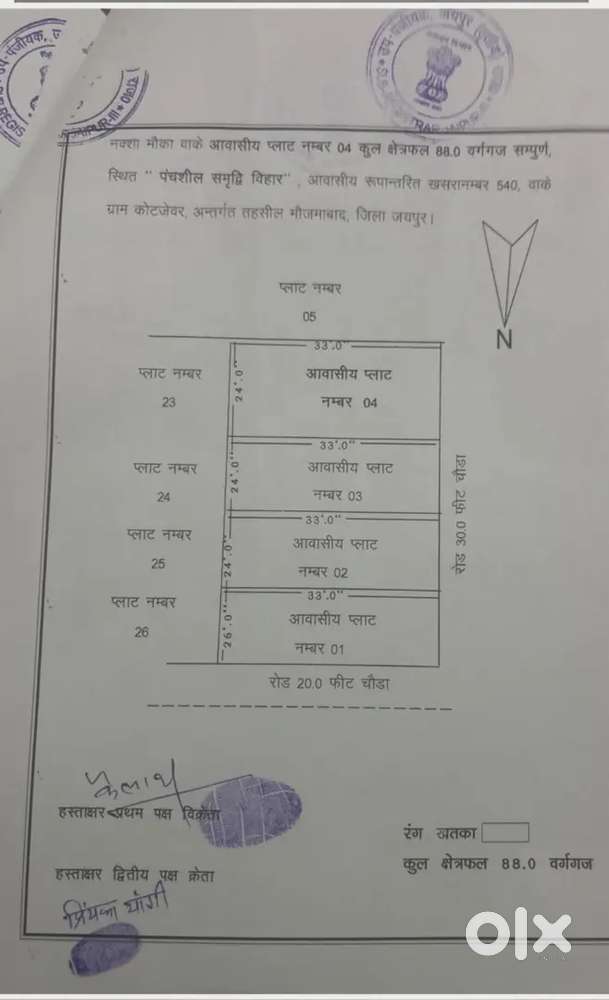 नक्शा मौका वाके आवासीय प्लाट नम्बर 04 कुल क्षेत्रफल 88.0 वर्गगज सम्पुर्ण,
स्थित " पंचशील समृद्वि विहार" , आवासीय रूपान्तरित खसरानम्बर 540, वाके
ग्राम कोटजेवर, अन्तर्गत तहसील मौजमाबाद, जिला जयपुर।
N
प्लाट नम्बर
05
33'.0"
24'.0"
आवासीय प्लाट
नम्बर 04
प्लाट नम्बर
23
33'.0"
24'.0"
आवासीय प्लाट
नम्बर 03
प्लाट नम्बर
24
रोड 30.0 फीट चौडा
33'.0"
24'.0"
आवासीय प्लाट
नम्बर 02
प्लाट नम्बर
25
33'.0"
26'.0"
आवासीय प्लाट
नम्बर 01
प्लाट नम्बर
26
रोड 20.0 फीट चौडा
कैलाश
हस्ताक्षर प्रथम पक्ष विक्रेता
रंग खतका
कुल क्षेत्रफल 88.0 वर्गगज
हस्ताक्षर द्वितीय पक्ष क्रेता
प्रियंका योगी
olx